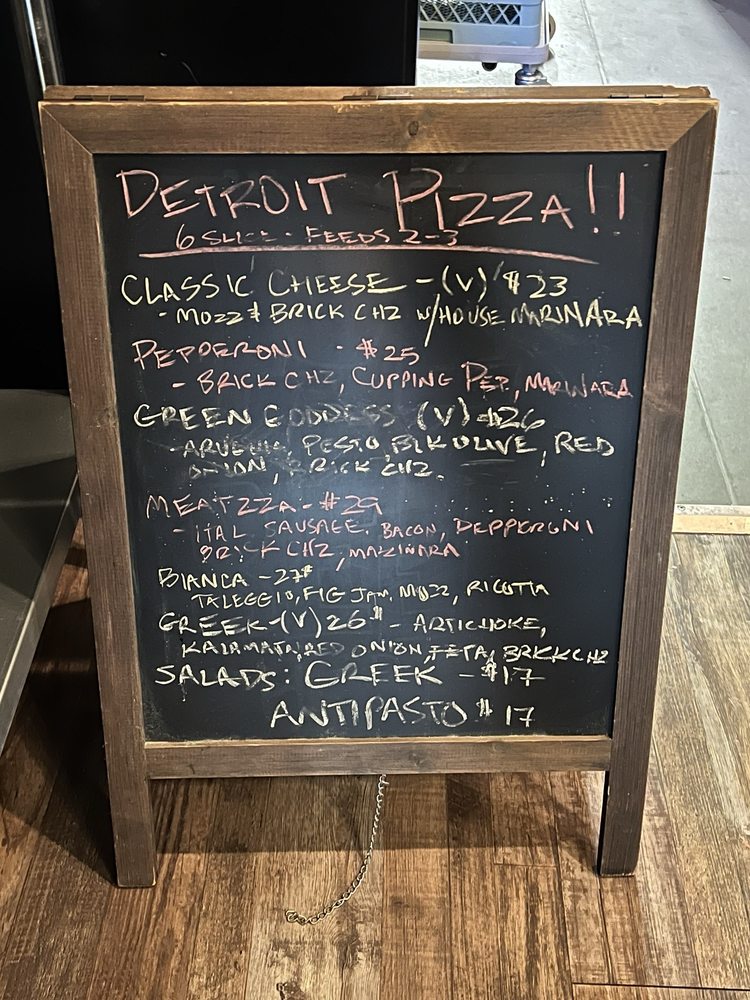 DETROIT PIZZA!!
6 SLICE - FEEDS 2-3
CLASSIC CHEESE - (V) $23
- MOZZ & BRICK CHZ W/HOUSE MARINARA
PEPPERONI - $25
- BRICK CHZ, CUPPING PEP, MARINARA
GREEN GODDESS (V) $26
- PESTO, BLK OLIVE, RED
ONION, BRICK CHZ.
MEATZZA - $29
- ITAL SAUSAGE, BACON, PEPPERONI
BRICK CHZ, MARINARA
BIANCA - 27$
TALEGGIO, FIG JAM, MOZZ, RICOTTA
GREEK - (V) 26$ - ARTICHOKE,
KALAMATA, RED ONION, FETA, BRICK CHZ
SALADS: GREEK - $17
ANTIPASTO $17